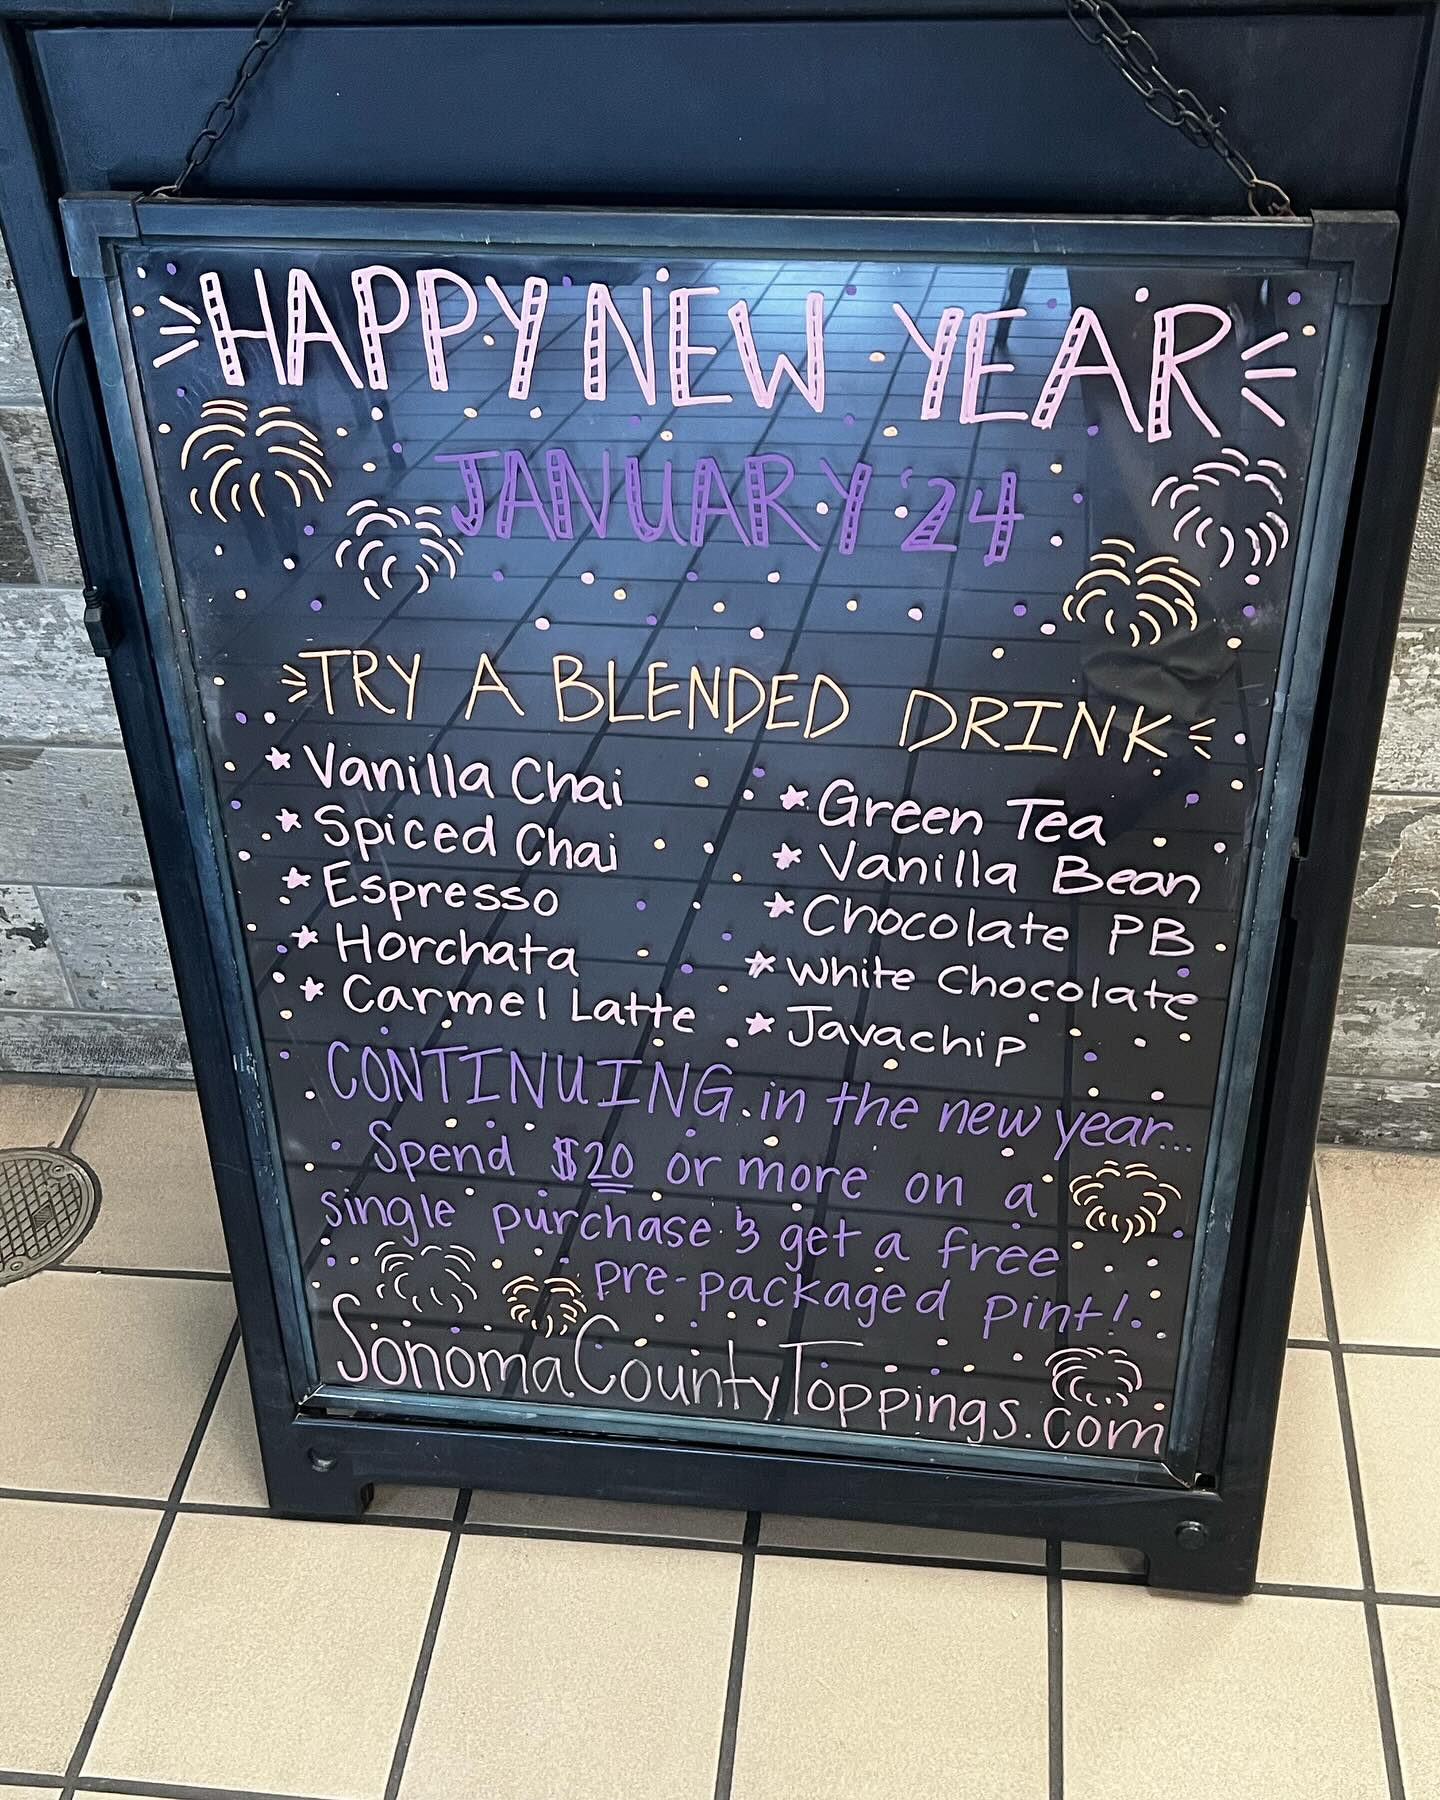 HAPPY NEW YEAR
JANUARY '24
TRY A BLENDED DRINK
Vanilla Chai
Spiced Chai
Espresso
Horchata
Carmel Latte
Green Tea
Vanilla Bean
Chocolate PB
White Chocolate
Javachip
CONTINUING in the new year...
Spend $20 or more on a
single purchase & get a free
pre-packaged pint!
SonomaCountyToppings.com